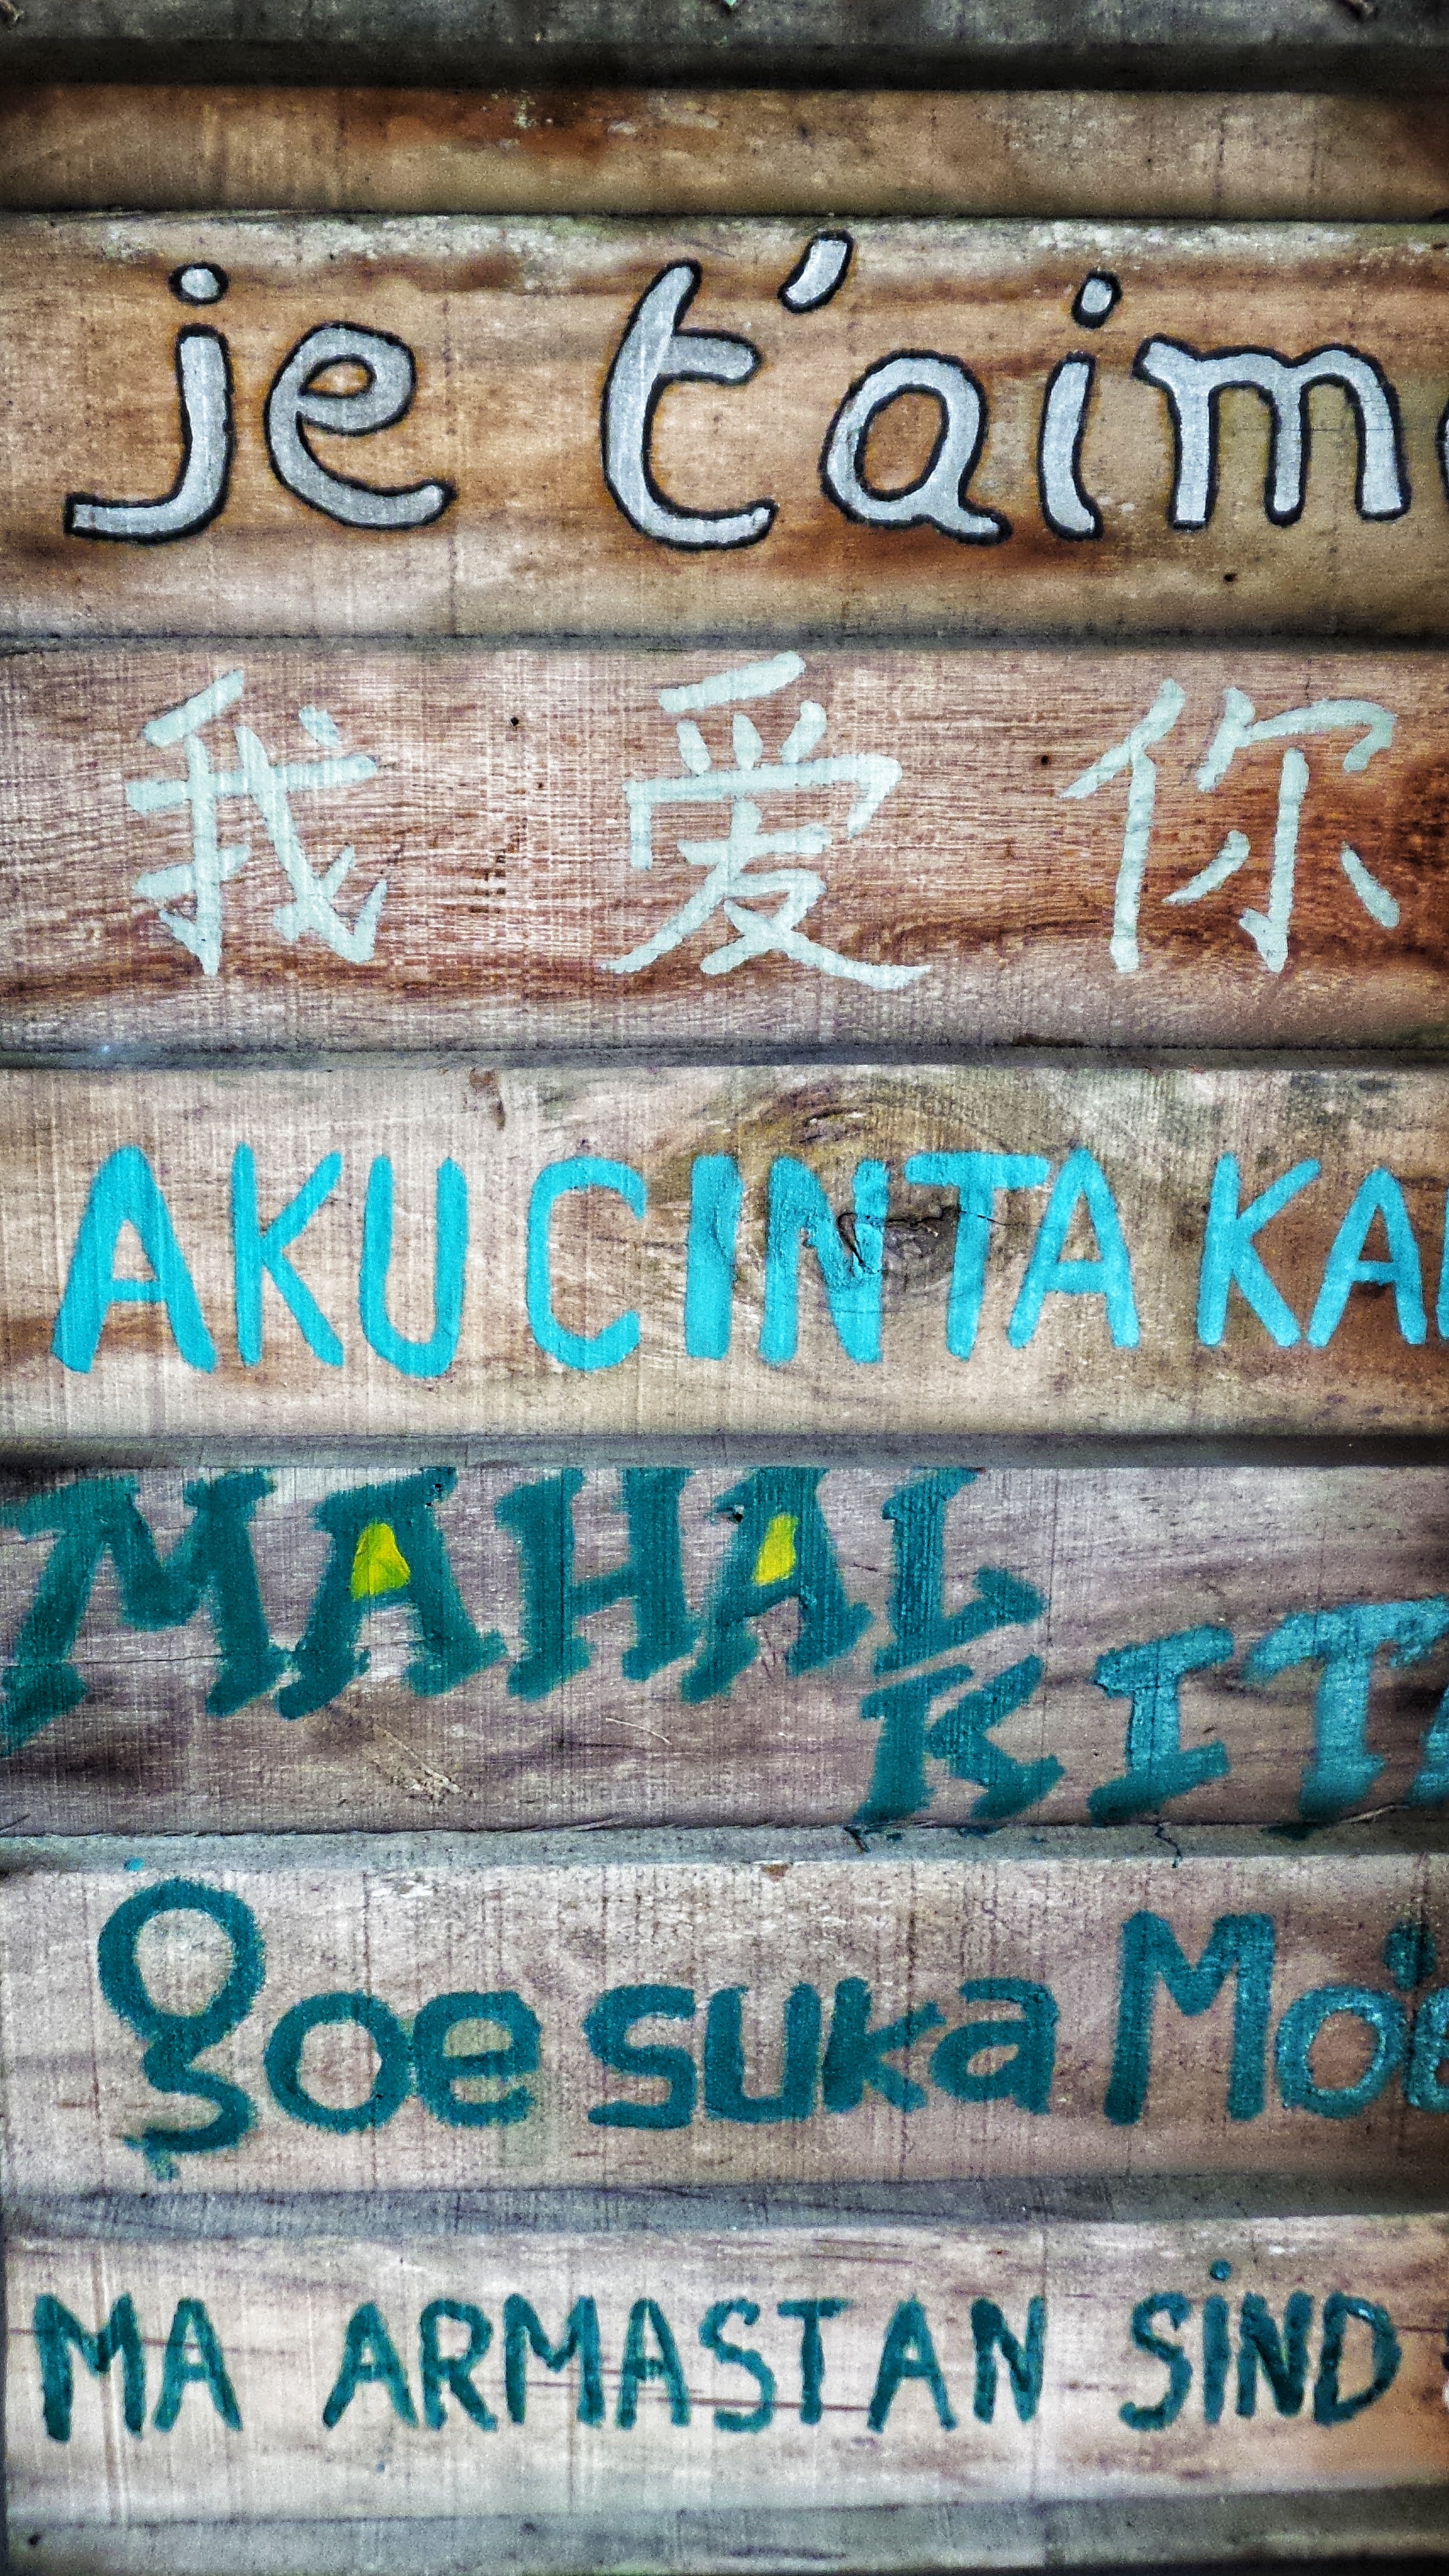 je t'aim
我 爱 你
AKU CINTA KA
MAHAL
KITA
goe suka Mo
MA ARMASTAN SIND